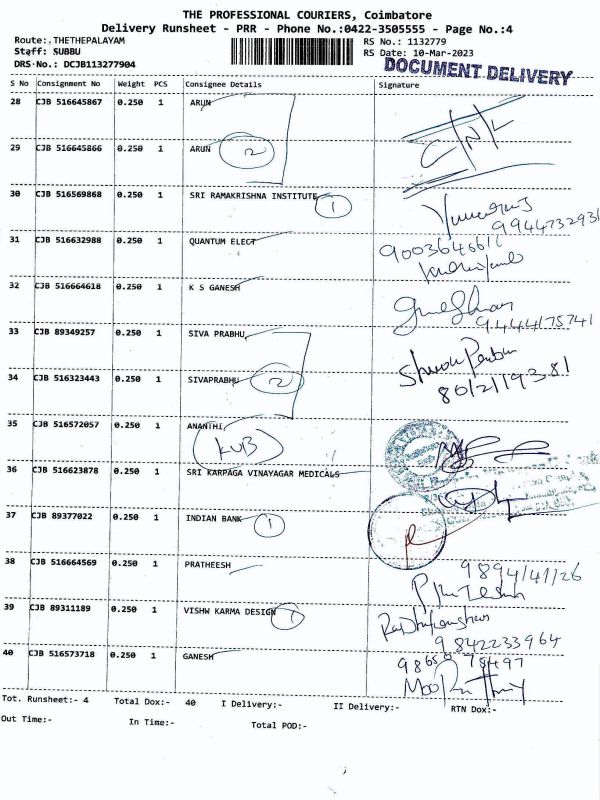 THE PROFESSIONAL COURIERS, Coimbatore
Delivery Runsheet - PRR - Phone No.:0422-3505555 - Page No.:4
Route:.THETHEPALAYAM RS No.: 1132779
Staff: SUBBU RS Date: 10-Mar-2023
DRS-No.: DCJB113277904 DOCUMENT DELIVERY
S No Consignment No Weight PCS Consignee Details Signature
28 CJB 516645867 0.250 1 ARUN
29 CJB 516645866 0.250 1 ARUN 2 C/N/L
30 CJB 516569868 0.250 1 SRI RAMAKRISHNA INSTITUTE 1
31 CJB 516632988 0.250 1 QUANTUM ELECT 9003646611
32 CJB 516664618 0.250 1 K S GANESH 9444175741
33 CJB 89349257 0.250 1 SIVA PRABHU,
34 CJB 516323443 0.250 1 SIVAPRABHU 2
35 CJB 516572057 0.250 1 ANANTHI, KVB
36 CJB 516623878 0.250 1 SRI KARPAGA VINAYAGAR MEDICALS
37 CJB 89377022 0.250 1 INDIAN BANK 1
38 CJB 516664569 0.250 1 PRATHEESH 9894141126
39 CJB 89311189 0.250 1 VISHW KARMA DESIGN 1 9842233964
40 CJB 516573718 0.250 1 GANESH
Tot. Runsheet:- 4 Total Dox:- 40 I Delivery:- II Delivery:- RTN Dox:-
Out Time:- In Time:- Total POD:-